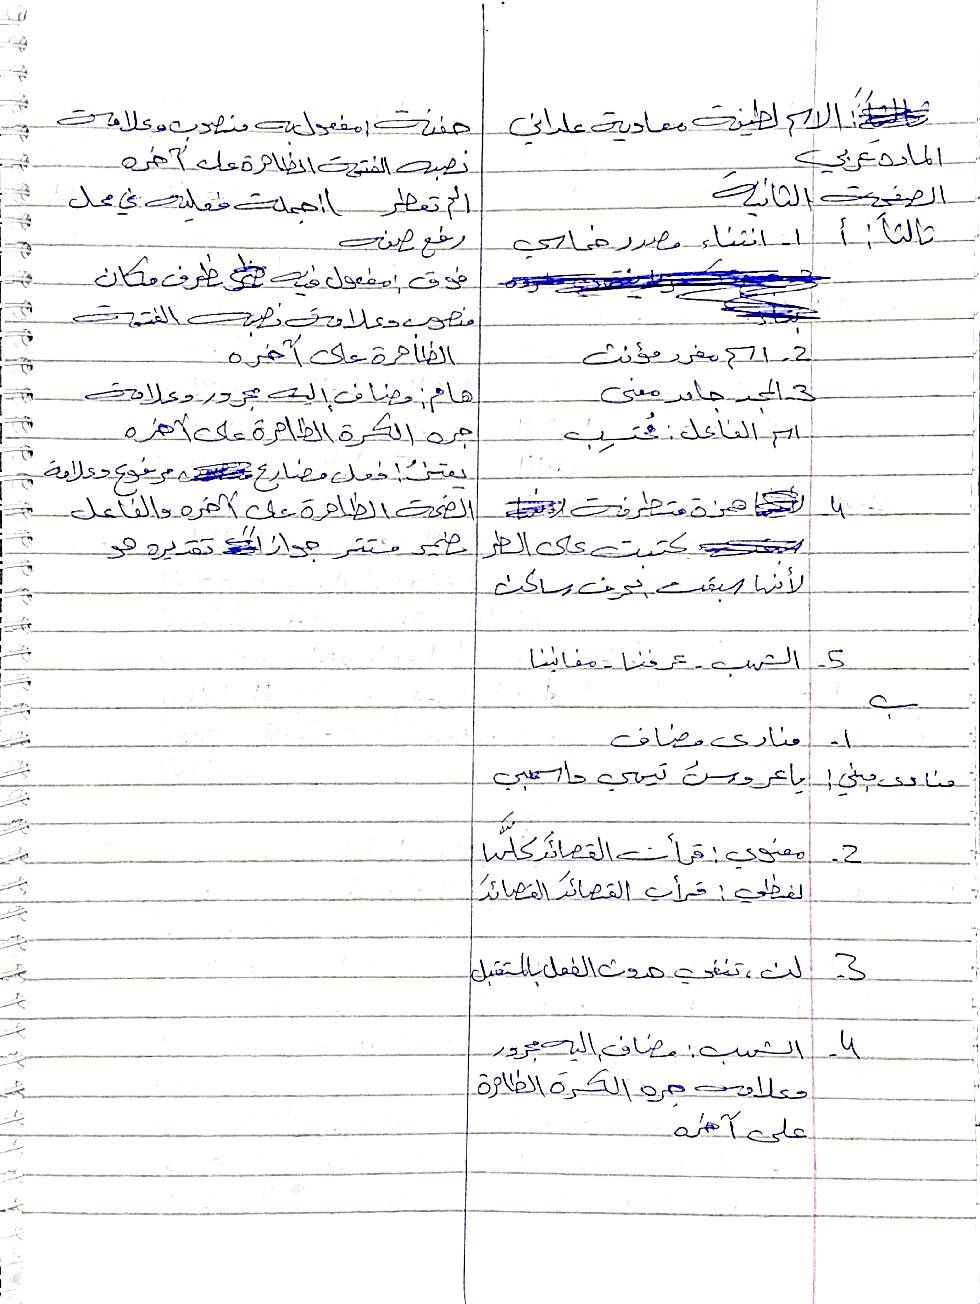 الاسم لطيفة معاوية علداني
المادة عربي
الصفحة الثانية
ثالثاً: أ 1- انتشاء مصدر خماسي
2- اسم مفرد مؤنث
3- المجد جامد معنى
اسم الفاعل: مُحتسِب
4- همزة متطرفة
كتبت على السطر
لأنها سبقت بحرف ساكن
5- الشهب - عرفننا - مغانينا
ب
1- منادى مضاف
منادى مبني: يا عروسُ تيهي واسحبي
2- معنوي: قرأت القصائدَ كلَّها
لفظي: قرأت القصائدَ القصائدَ
3- لن، تنفي حدوث الفعل بالمستقبل
4- الشهب: مضاف إليه مجرور
وعلامة جره الكسرة الظاهرة
على آخره
حفنة: مفعول به منصوب وعلامة
نصبه الفتحة الظاهرة على آخره
(لم تعطر): جملة فعلية في محل
رفع صفة
فوق: مفعول فيه ظرف مكان
منصوب وعلامة نصبه الفتحة
الظاهرة على آخره
هام: مضاف إليه مجرور وعلامة
جره الكسرة الظاهرة على آخره
فعل مضارع مرفوع وعلامة
الضمة الظاهرة على آخره والفاعل
ضمير مستتر جوازاً تقديره هو